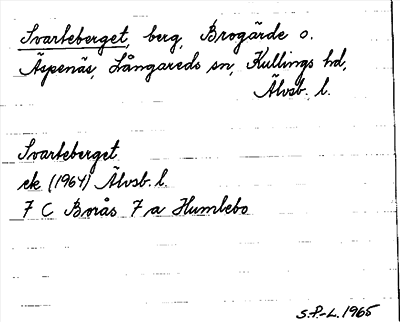 Svarteberget, berg, Brogärde o.
Äspenäs, Långareds sn, Kullings hd,
Älvsb. l.
Svarteberget
ek (1964) Älvsb. l.
7 C Borås 7 a Humlebo
S.P-L. 1965